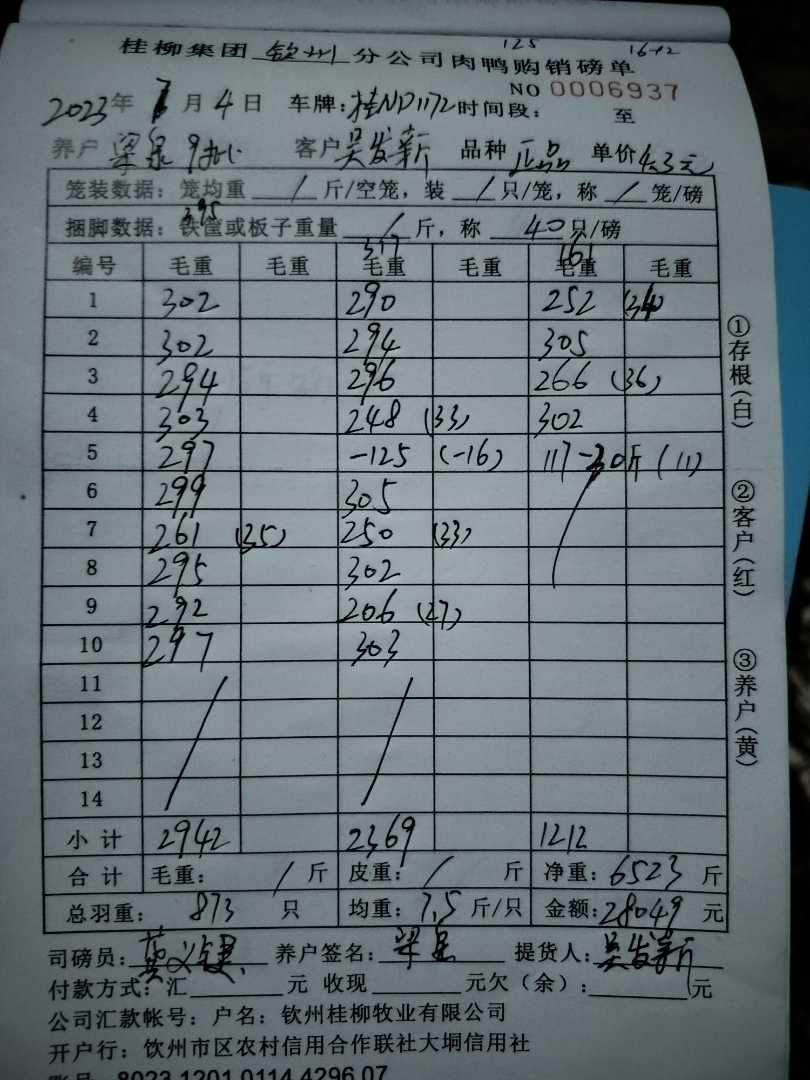 125 1672
桂柳集团 钦州 分公司肉鸭购销磅单
NO 0006937
2023年 7月 4日 车牌：桂ND1172 时间段： 至
养户 梁泉 9批 客户 吴发新 品种 正品 单价 4.3元
笼装数据：笼均重 / 斤/空笼，装 / 只/笼，称 / 笼/磅
395
捆脚数据：铁筐或板子重量 / 斤，称 40 只/磅
317 161
编号 毛重 毛重 毛重 毛重 毛重 毛重
1 302 290 252 (34)
2 302 294 305
3 294 296 266 (36)
4 303 248 (33) 302
5 297 -125 (-16) 117-30斤 (11)
6 299 305
7 261 (35) 250 (33)
8 295 302
9 292 206 (27)
10 297 303
11
12
13
14
小计 2942 2369 1212
合计 毛重： / 斤 皮重： / 斤 净重：6523 斤
总羽重： 873 只 均重：7.5 斤/只 金额：28049 元
司磅员：黄义健 养户签名：梁泉 提货人：吴发新
付款方式：汇 元 收现 元欠（余）： 元
公司汇款帐号：户名：钦州桂柳牧业有限公司
开户行：钦州市区农村信用合作联社大垌信用社
账号 8023 1201 0114 4296 07
①存根(白)
②客户(红)
③养户(黄)